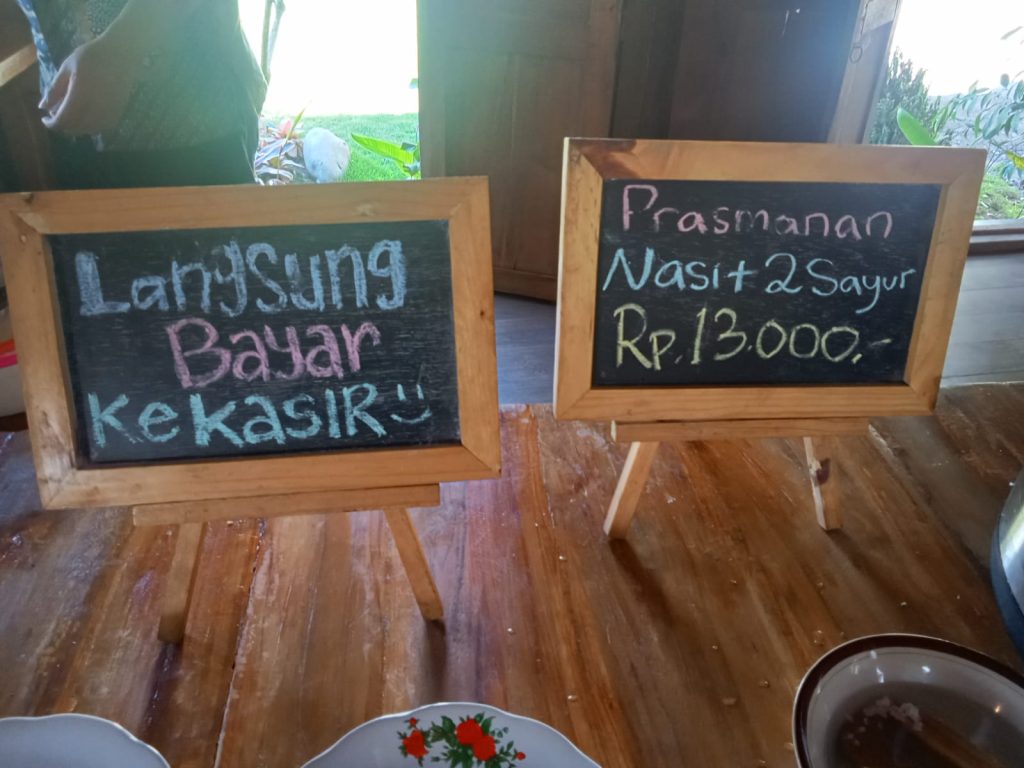 Langsung
Bayar
KeKASIR :)
Prasmanan
Nasi + 2 Sayur
Rp. 13.000,-